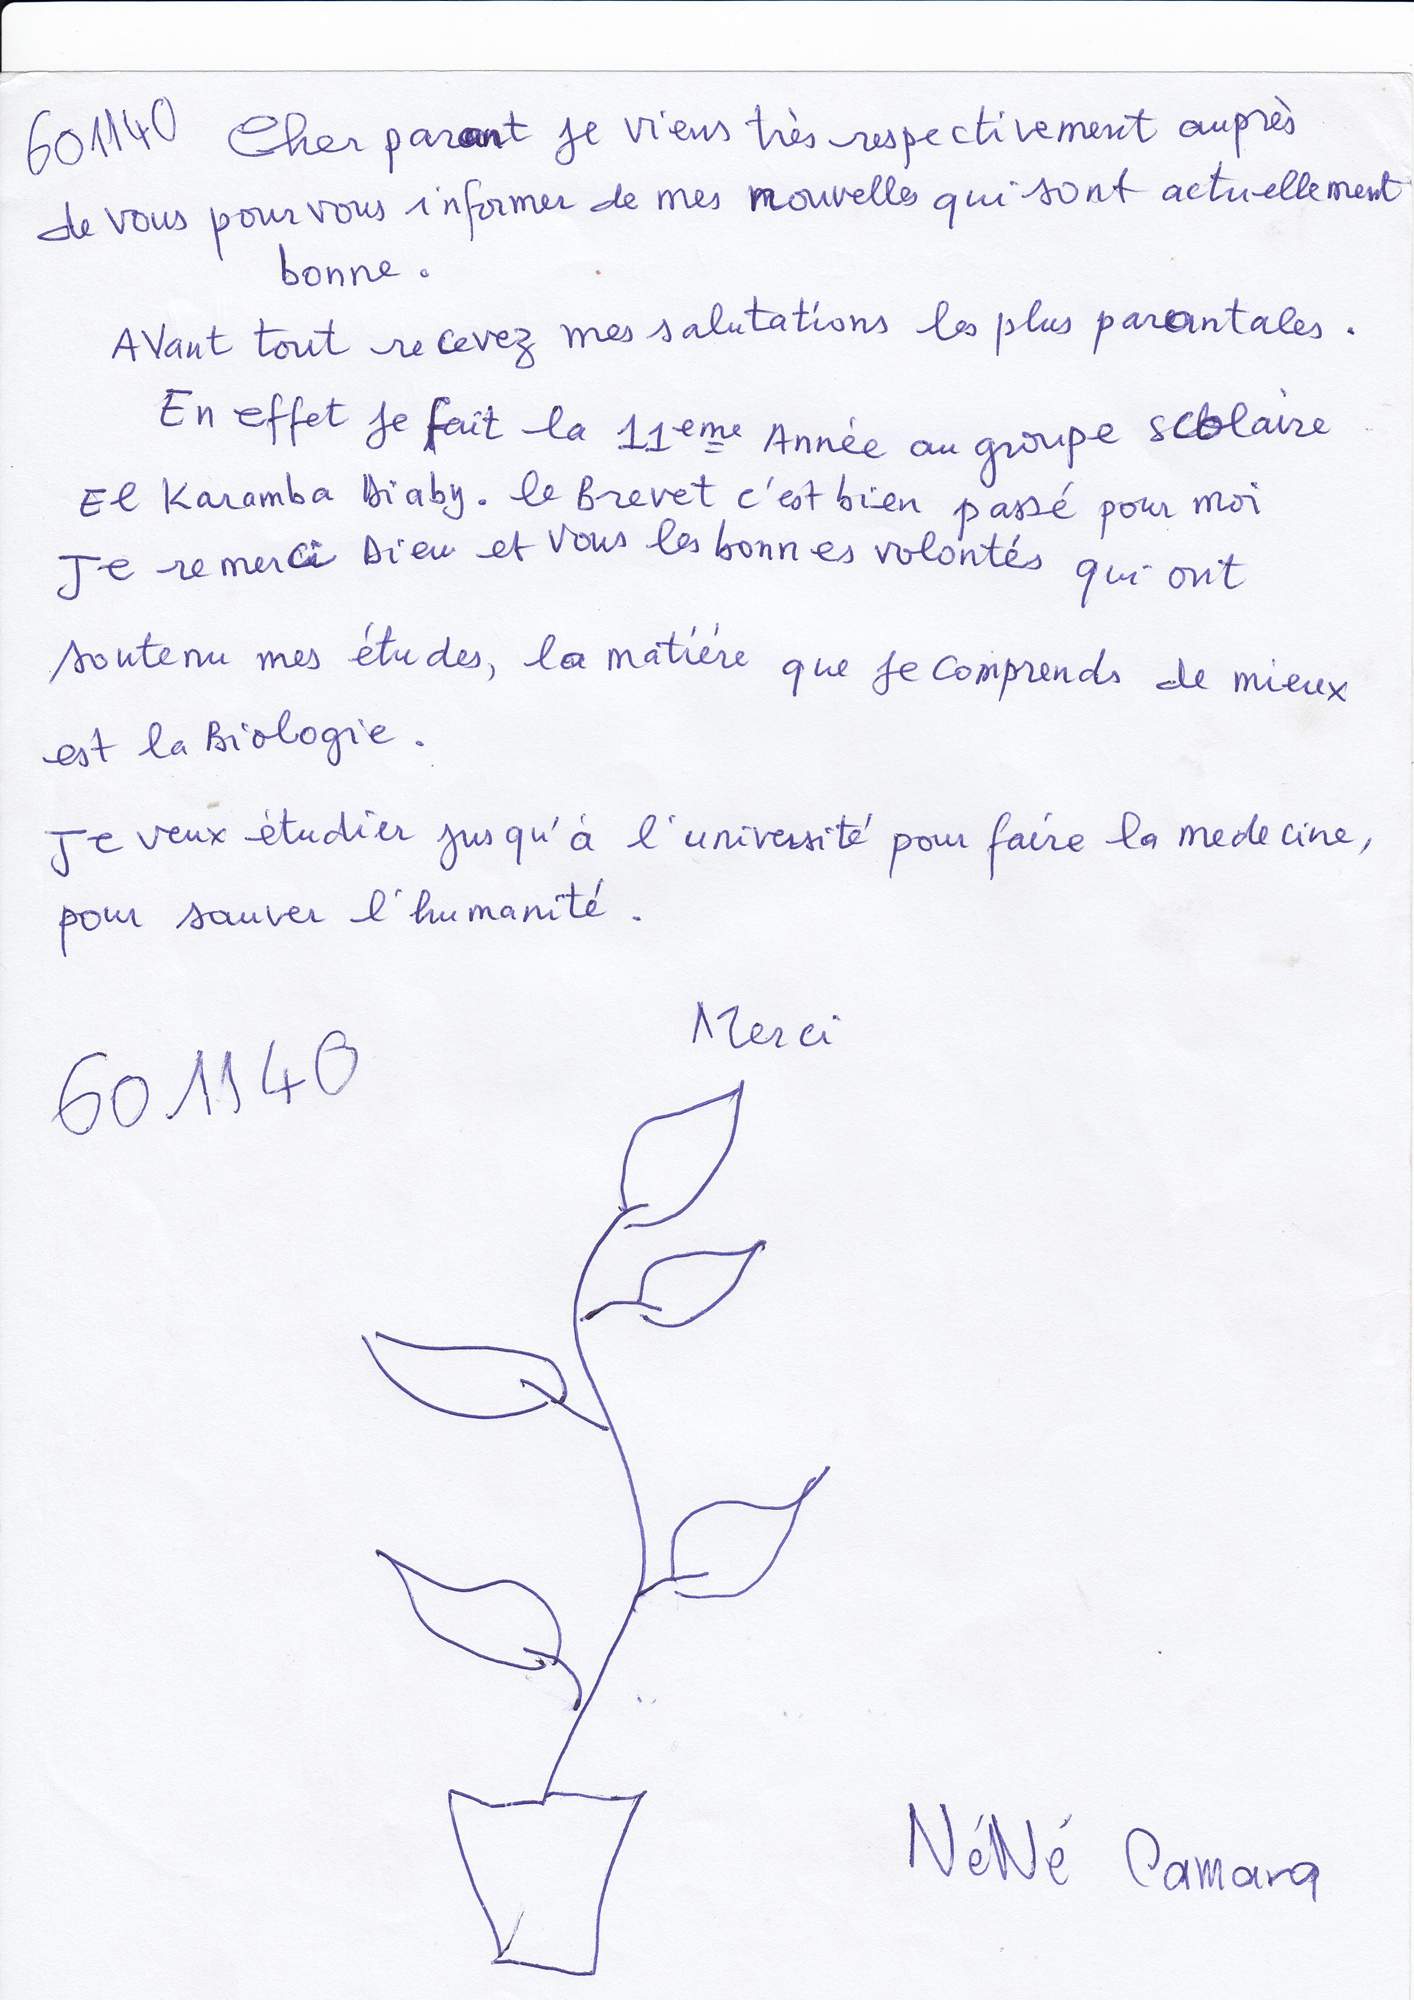 601140 Cher parant je viens très respectivement auprès
de vous pour vous informer de mes nouvelles qui sont actuellement
bonne.
Avant tout recevez mes salutations les plus parantales.
En effet je fait la 11eme Année au groupe scolaire
El Karamba Diaby. le Brevet c'est bien passé pour moi
Je remerci Dieu et vous les bonnes volontés qui ont
soutenu mes études, la matiére que je comprends de mieux
est la Biologie.
Je veux étudier jusqu'à l'université pour faire la medecine,
pour sauver l'humanité.
Merci
601140
NéNé Camara